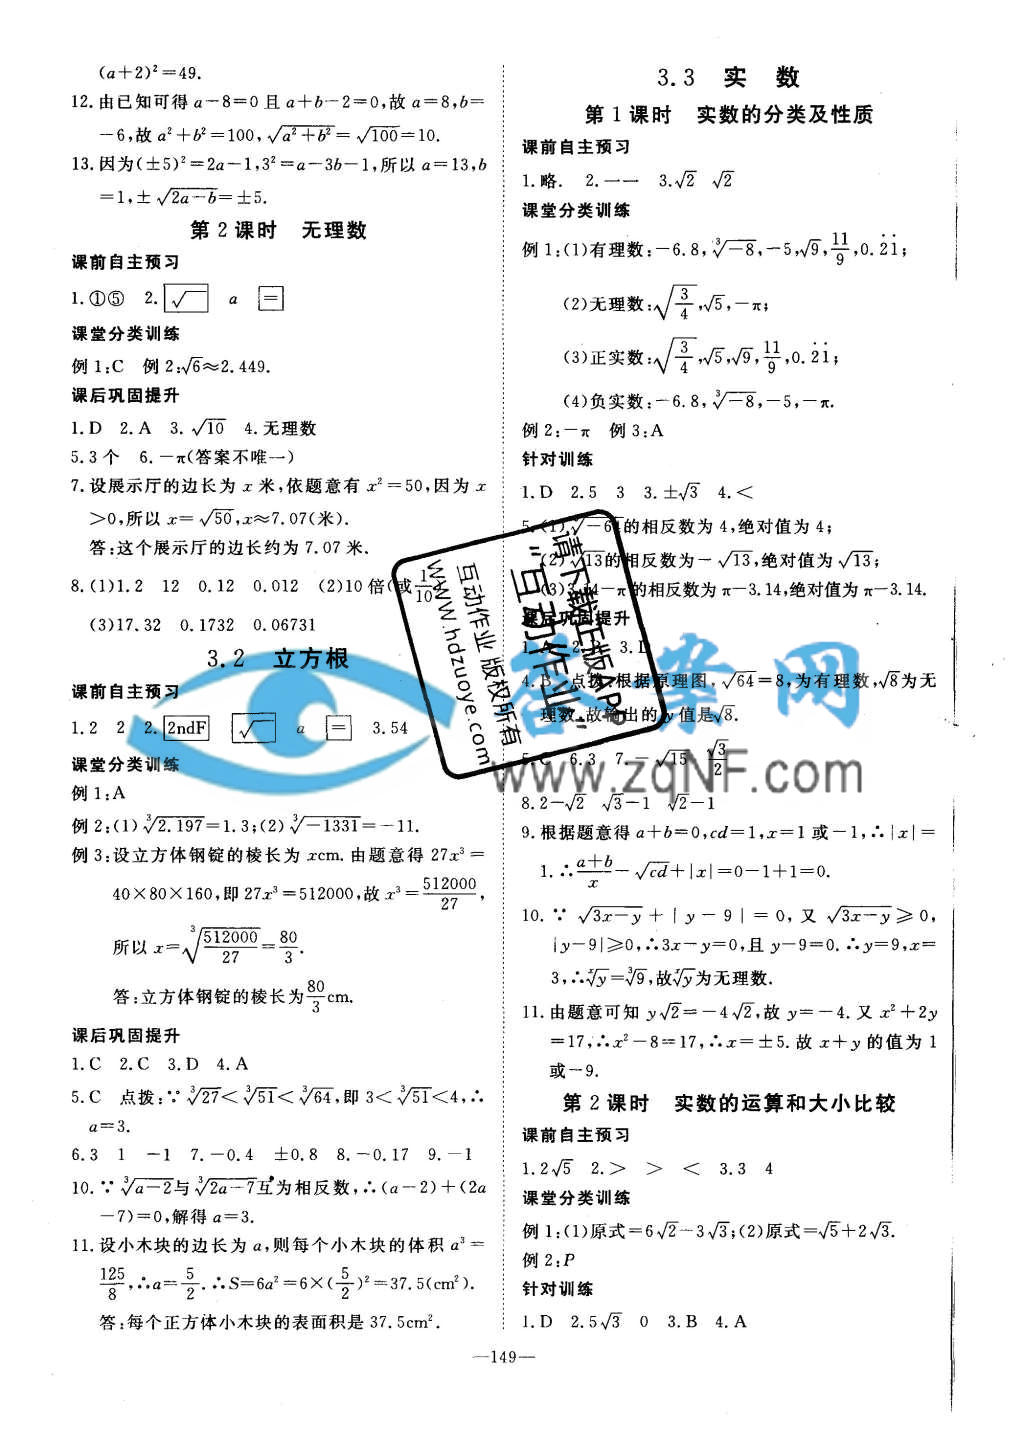 (a+2)²=49.
12.由已知可得 a-8=0 且 a+b-2=0,故 a=8,b=
-6,故 a²+b²=100,√(a²+b²)=√100=10.
13.因为(±5)²=2a-1,3²=a-3b-1,所以 a=13,b
=1,±√(2a-b)=±5.
第2课时 无理数
课前自主预习
1.①⑤ 2.√ a =
课堂分类训练
例1:C 例2:√6≈2.449.
课后巩固提升
1.D 2.A 3.√10 4.无理数
5.3个 6.-π(答案不唯一)
7.设展示厅的边长为 x 米,依题意有 x²=50,因为 x
>0,所以 x=√50,x≈7.07(米).
答:这个展示厅的边长约为 7.07 米.
8.(1)1.2 12 0.12 0.012 (2)10倍(或1/10)
(3)17.32 0.1732 0.06731
3.2 立方根
课前自主预习
1.2 2 2.2ndF √ a = 3.54
课堂分类训练
例1:A
例2:(1)∛2.197=1.3;(2)∛-1331=-11.
例3:设立方体钢锭的棱长为 xcm.由题意得 27x³=
40×80×160,即 27x³=512000,故 x³=512000/27,
所以 x=∛(512000/27)=80/3.
答:立方体钢锭的棱长为80/3cm.
课后巩固提升
1.C 2.C 3.D 4.A
5.C 点拨:∵∛27<∛51<∛64,即 3<∛51<4,∴
a=3.
6.3 1 -1 7.-0.4 ±0.8 8.-0.17 9.-1
10.∵∛(a-2)与∛(2a-7)互为相反数,∴(a-2)+(2a
-7)=0,解得 a=3.
11.设小木块的边长为 a,则每个小木块的体积 a³=
125/8,∴a=5/2.∴S=6a²=6×(5/2)²=37.5(cm²).
答:每个正方体小木块的表面积是 37.5cm².
3.3 实 数
第1课时 实数的分类及性质
课前自主预习
1.略. 2.一一 3.√2 √2
课堂分类训练
例1:(1)有理数:-6.8,∛-8,-5,√9,11/9,0.2̇1̇;
(2)无理数:√(3/4),√5,-π;
(3)正实数:√(3/4),√5,√9,11/9,0.2̇1̇;
(4)负实数:-6.8,∛-8,-5,-π.
例2:-π 例3:A
针对训练
1.D 2.5 3 3.±√3 4.<
5.(1)∛-64的相反数为 4,绝对值为 4;
(2)√13的相反数为-√13,绝对值为√13;
(3)3.14-π的相反数为 π-3.14,绝对值为 π-3.14.
课后巩固提升
1.A 2.B 3.D
4.B 点拨:根据原理图,√64=8,为有理数,√8为无
理数,故输出的 y 值是√8.
5.C 6.3 7.-√15 √3/2
8.2-√2 √3-1 √2-1
9.根据题意得 a+b=0,cd=1,x=1 或-1,∴|x|=
1.∴(a+b)/x-√cd+|x|=0-1+1=0.
10.∵√(3x-y)+|y-9|=0,又√(3x-y)≥0,
|y-9|≥0,∴3x-y=0,且 y-9=0.∴y=9,x=
3,∴∛y=∛9,故∛y为无理数.
11.由题意可知 y√2=-4√2,故 y=-4.又 x²+2y
=17,∴x²-8=17,∴x=±5.故 x+y 的值为 1
或-9.
第2课时 实数的运算和大小比较
课前自主预习
1.2√5 2.> > < 3.3 4
课堂分类训练
例1:(1)原式=6√2-3√3;(2)原式=√5+2√3.
例2:P
针对训练
1.D 2.5√3 0 3.B 4.A
—149—
请下载正版APP
"互动作业"
互动作业 版权所有
www.hdzuoye.com
答案网
www.zqNF.com